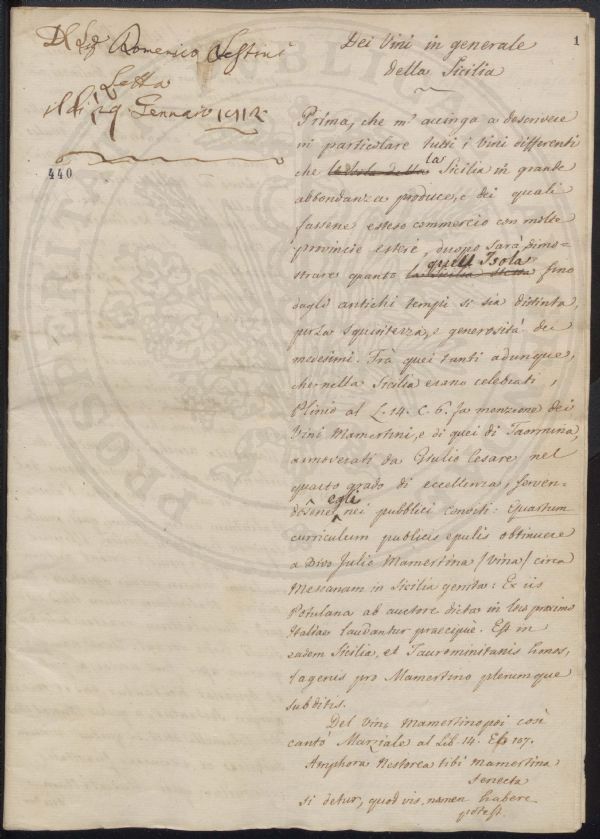 Del Sig.r Domenico Sestini
Letta
il dì 29 Gennaro 1812
440
1
Dei Vini in generale
della Sicilia
Prima, che m'accinga a descrivere
in particolare tutti i Vini differenti
che la Sicilia in grande
abbondanza produce, e dei quali
fassene esteso commercio con molte
provincie estere, duopo sarà dimo-
strare quanto quell'Isola fino
dagli antichi tempi si sia distinta,
per la squisitezza, e generosità dei
medesimi. Trà quei tanti adunque,
che nella Sicilia erano celebrati,
Plinio al L. 14. C. 6. fa menzione dei
Vini Mamertini, e di quei di Taormina,
annoverati da Giulio Cesare nel
quarto grado di eccellenza, serven-
dosene egli nei pubblici conviti: Quartum
curriculum publicis epulis obtinuere
a Divo Julio Mamertina /Vina/ circa
Messanam in Sicilia genita: Ex iis
Potulana ab auctore dicta in loco proximo
Italiae laudantur praecipuè. Est in
eadem Sicilia, et Taurominitanis honos,
lagenis pro Mamertino plerumque
subditis.
Del Vino Mamertino poi così
cantò Marziale al Lib. 14. Ep. 107.
Amphora Nestorea tibi Mamertina
senecta
Si detur, quod vis, nomen habere
potest.